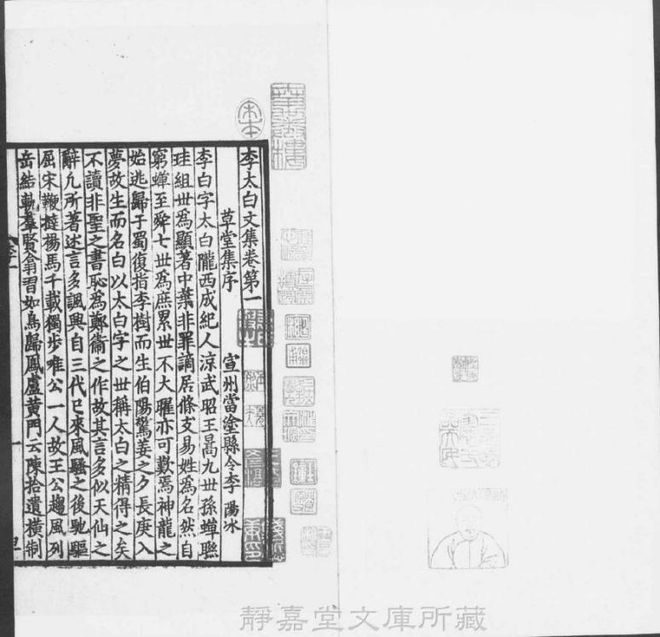 李太白文集卷第一
草堂集序　宣州當塗縣令李陽冰
李白字太白隴西成紀人涼武昭王暠九丗孫蟬聯
珪組丗爲顯著中葉非罪謫居條支易姓爲名然自
窮蟬至舜七丗爲庶累丗不大曜亦可歎焉神龍之
始逃歸于蜀復指李樹而生伯陽驚姜之夕長庚入
夢故生而名白以太白字之丗稱太白之精得之矣
不讀非聖之書恥爲鄭衞之作故其言多似天仙之
辭凡所著述言多諷興自三代已來風騷之後馳驅
屈宋鞭撻揚馬千載獨步唯公一人故王公趨風列
岳結軌羣賢翕習如鳥歸鳳盧黃門云陳拾遺橫制
一
宋本
靜嘉堂文庫所藏